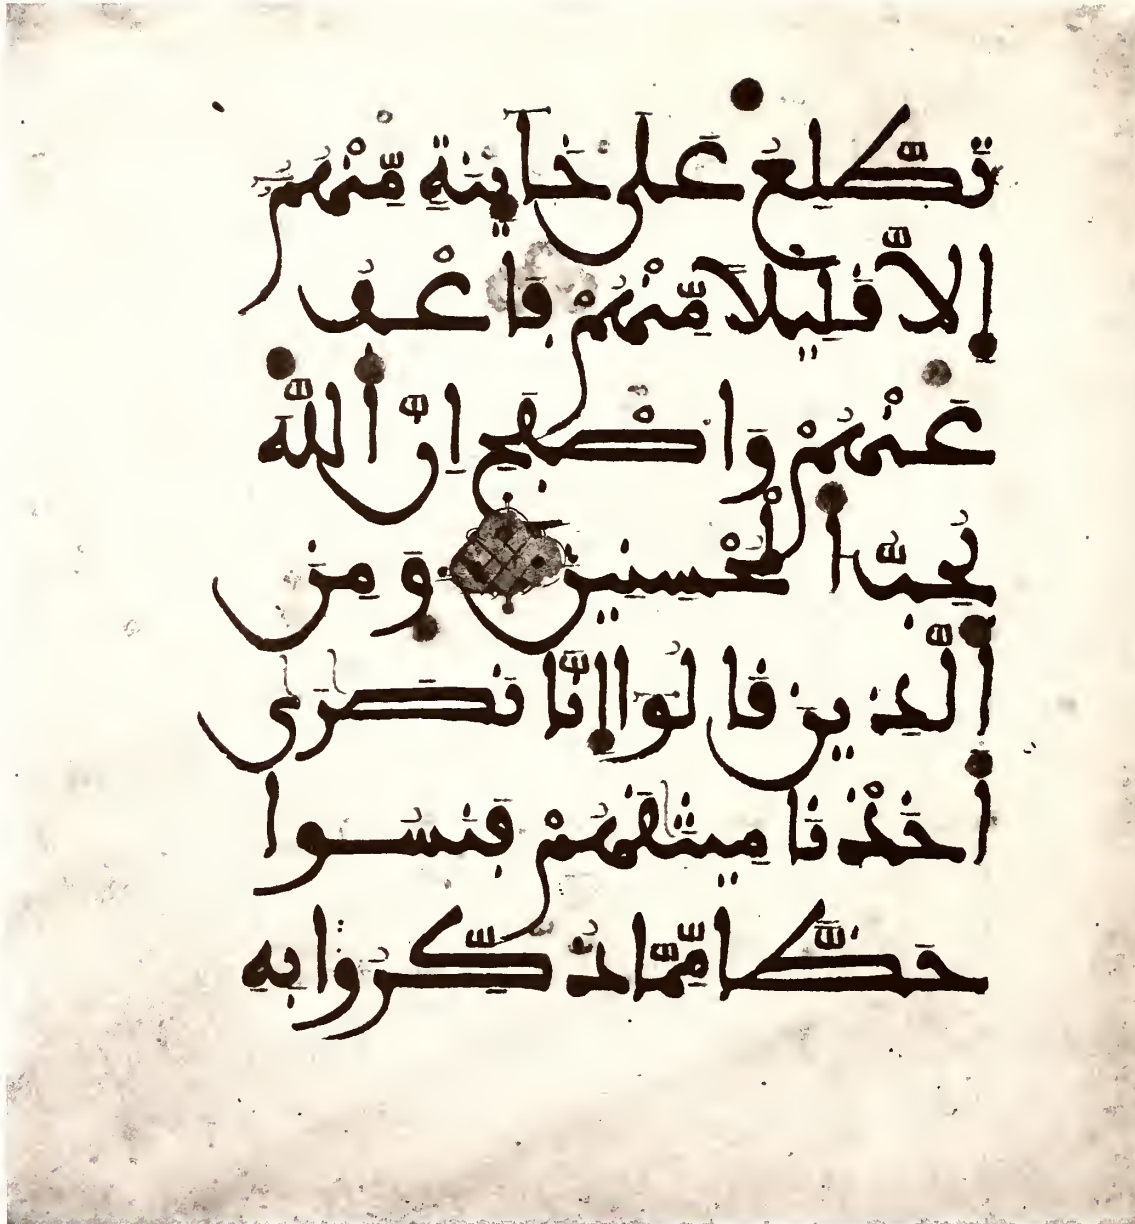 تَطَّلِعُ عَلَىٰ خَآئِنَةٍ مِّنْهُمُۥ
إِلَّا قَلِيلًا مِّنْهُمْ فَاعْفُ
عَنْهُمْ وَاصْفَحِ اِنَّ اَللَّهَ
يُحِبُّ اُلْمُحْسِنِينَ وَمِنَ
اَلَّذِينَ قَالُواْ إِنَّا نَصَٰرَىٰ
أَخَذْنَا مِيثَٰقَهُمْ فَنَسُوا
حَظًّا مِّمَّا ذُكِّرُوا بِهِ